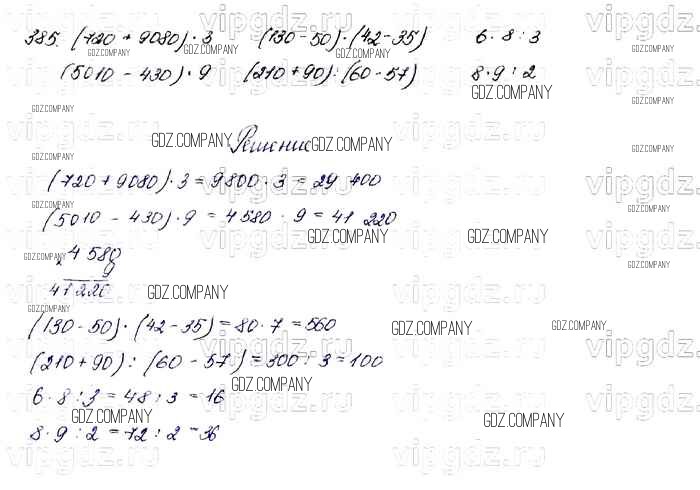 385. (720 + 9080) · 3 (130 - 50) · (42 - 35) 6 · 8 : 3
(5010 - 430) · 9 (210 + 90) : (60 - 57) 8 · 9 : 2
Решение
(720 + 9080) · 3 = 9800 · 3 = 29 400
(5010 - 430) · 9 = 4580 · 9 = 41 220
× 4 580
9
41 220
(130 - 50) · (42 - 35) = 80 · 7 = 560
(210 + 90) : (60 - 57) = 300 : 3 = 100
6 · 8 : 3 = 48 : 3 = 16
8 · 9 : 2 = 72 : 2 = 36
GDZ.COMPANY
vipgdz.ru